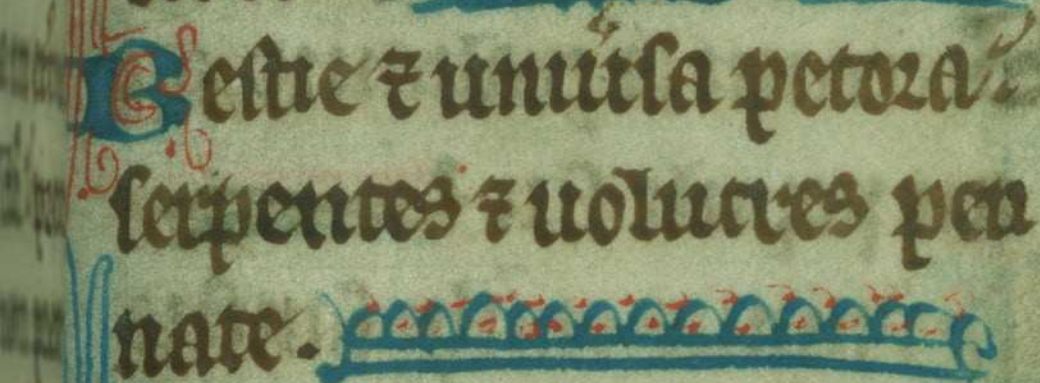 Bestie ⁊ uniu̾sa petora:
serpentes ⁊ uolucres pen
nate.